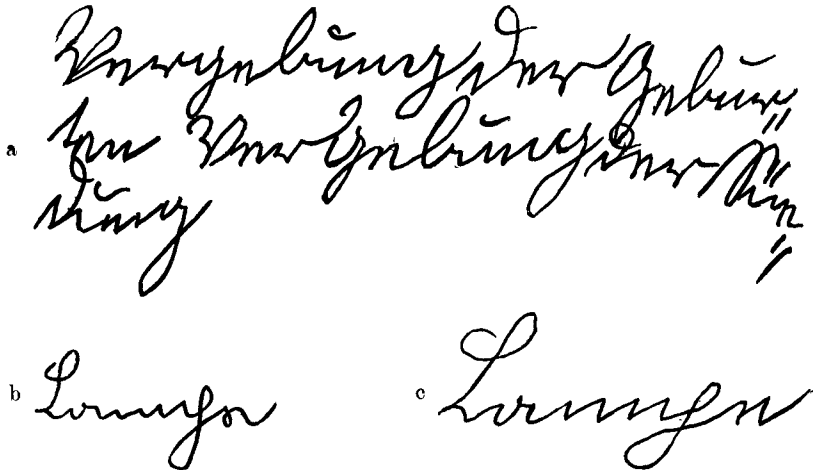 Vergebung der Gebur=
a ten VerGebung der Sün=
dung
b
c Lampe